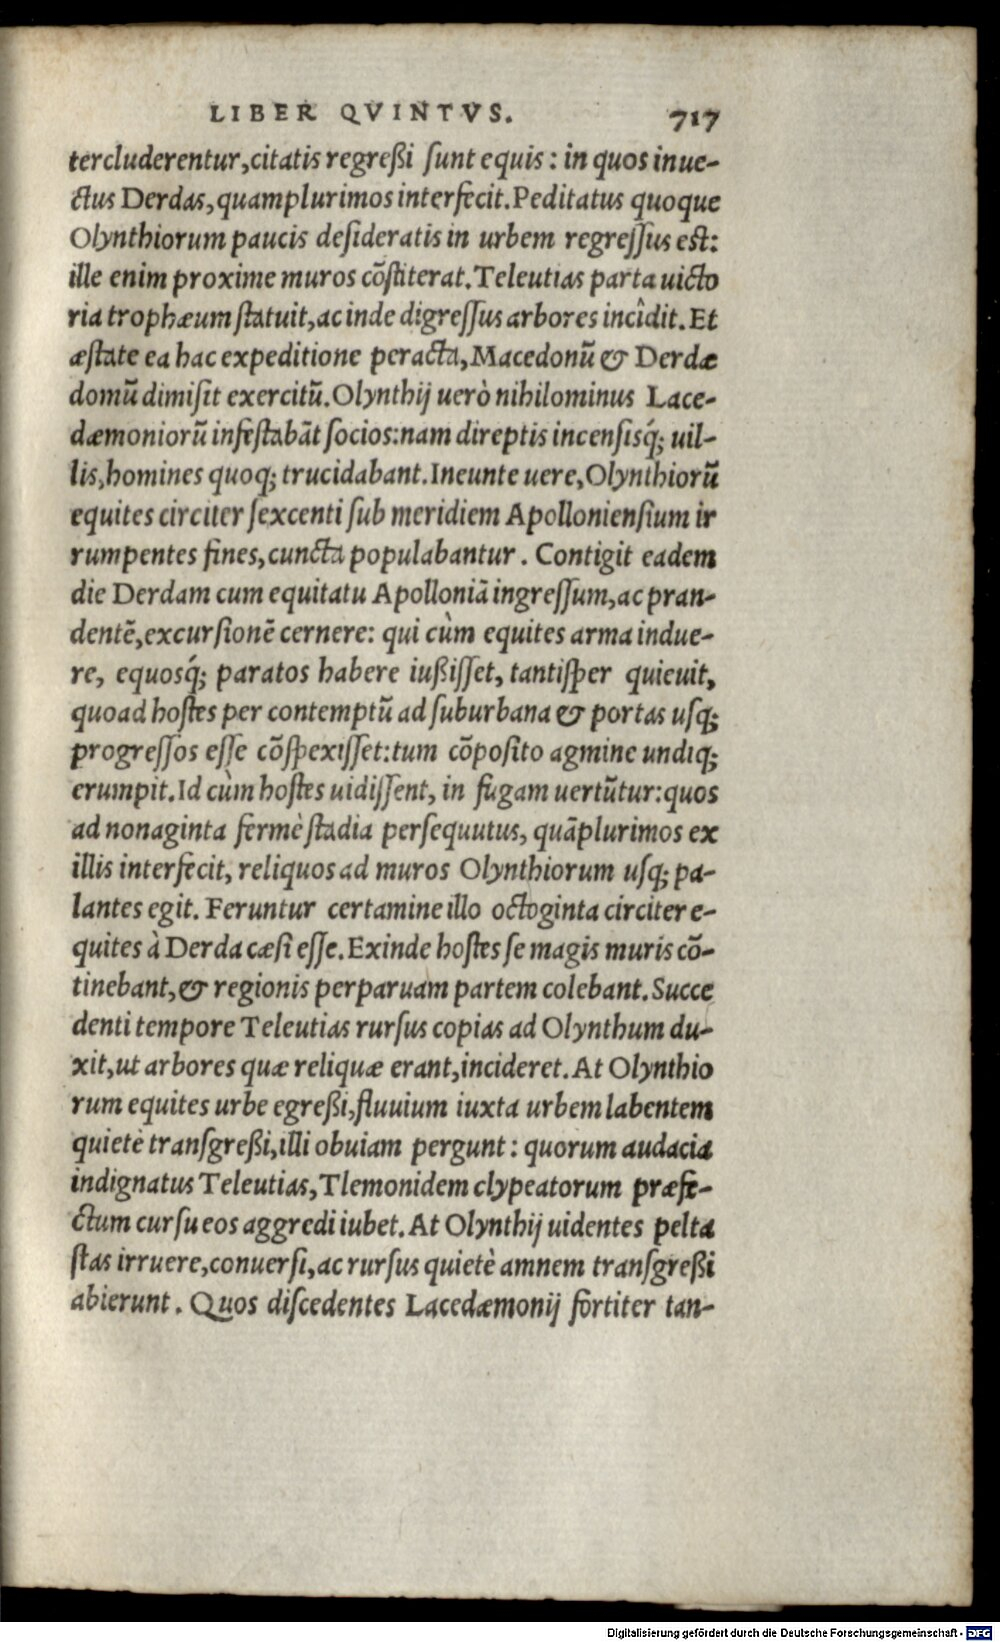 LIBER QVINTVS. 717
tercluderentur,citatis regreßi ſunt equis : in quos inue-
ctus Derdas,quamplurimos interfecit.Peditatus quoque
Olynthiorum paucis deſideratis in urbem regreſſus est:
ille enim proxime muros cõſtiterat.Teleutias parta uicto
ria trophæum ſtatuit,ac inde digreſſus arbores incîdit.Et
æſtate ea hac expeditione peracta,Macedonũ & Derdæ
domũ dimiſit exercitũ.Olynthij uerò nihilominus Lace-
dæmoniorũ infeſtabãt ſocios:nam direptis incenſisq́; uil-
lis,homines quoq; trucidabant.Ineunte uere,Olynthiorũ
equites circiter ſexcenti ſub meridiem Apollonienſium ir
rumpentes fines,cuncta populabantur . Contigit eadem
die Derdam cum equitatu Apolloniã ingreſſum,ac pran-
dentẽ,excurſionẽ cernere: qui cùm equites arma indue-
re, equosq́; paratos habere iußiſſet, tantiſper quieuit,
quoad hoſtes per contemptũ ad ſuburbana & portas uſq;
progreſſos eſſe cõſpexiſſet:tum cõpoſito agmine undiq;
erumpit.Id cùm hoſtes uidiſſent, in fugam uertũtur:quos
ad nonaginta fermè ſtadia perſequutus, quãplurimos ex
illis interfecit, reliquos ad muros Olynthiorum uſq; pa-
lantes egit. Feruntur certamine illo octoginta circiter e-
quites à Derda cæſi eſſe.Exinde hoſtes ſe magis muris cõ-
tinebant,& regionis perparuam partem colebant.Succe
denti tempore Teleutias rurſus copias ad Olynthum du-
xit,ut arbores quæ reliquæ erant,incideret.At Olynthio
rum equites urbe egreßi,fluuium iuxta urbem labentem
quietè tranſgreßi,illi obuiam pergunt : quorum audacia
indignatus Teleutias,Tlemonidem clypeatorum præfe-
ctum curſu eos aggredi iubet.At Olynthij uidentes pelta
ſtas irruere,conuerſi,ac rurſus quietè amnem tranſgreßi
abierunt . Quos diſcedentes Lacedæmonij fortiter tan-
Digitalisierung gefördert durch die Deutsche Forschungsgemeinschaft - DFG